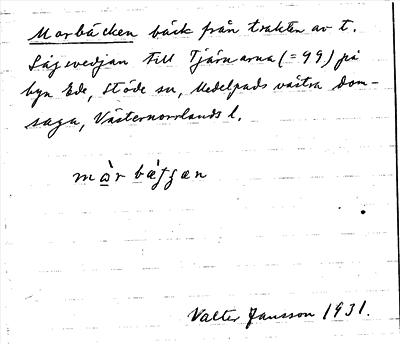 Morbäcken bäck från trakten av t.
Lågsvedjan till Tjärnarna (= 99) på
byn Ede, Stöde sn, Medelpads västra dom-
saga, Västernorrlands l.
Valter Jansson 1931.